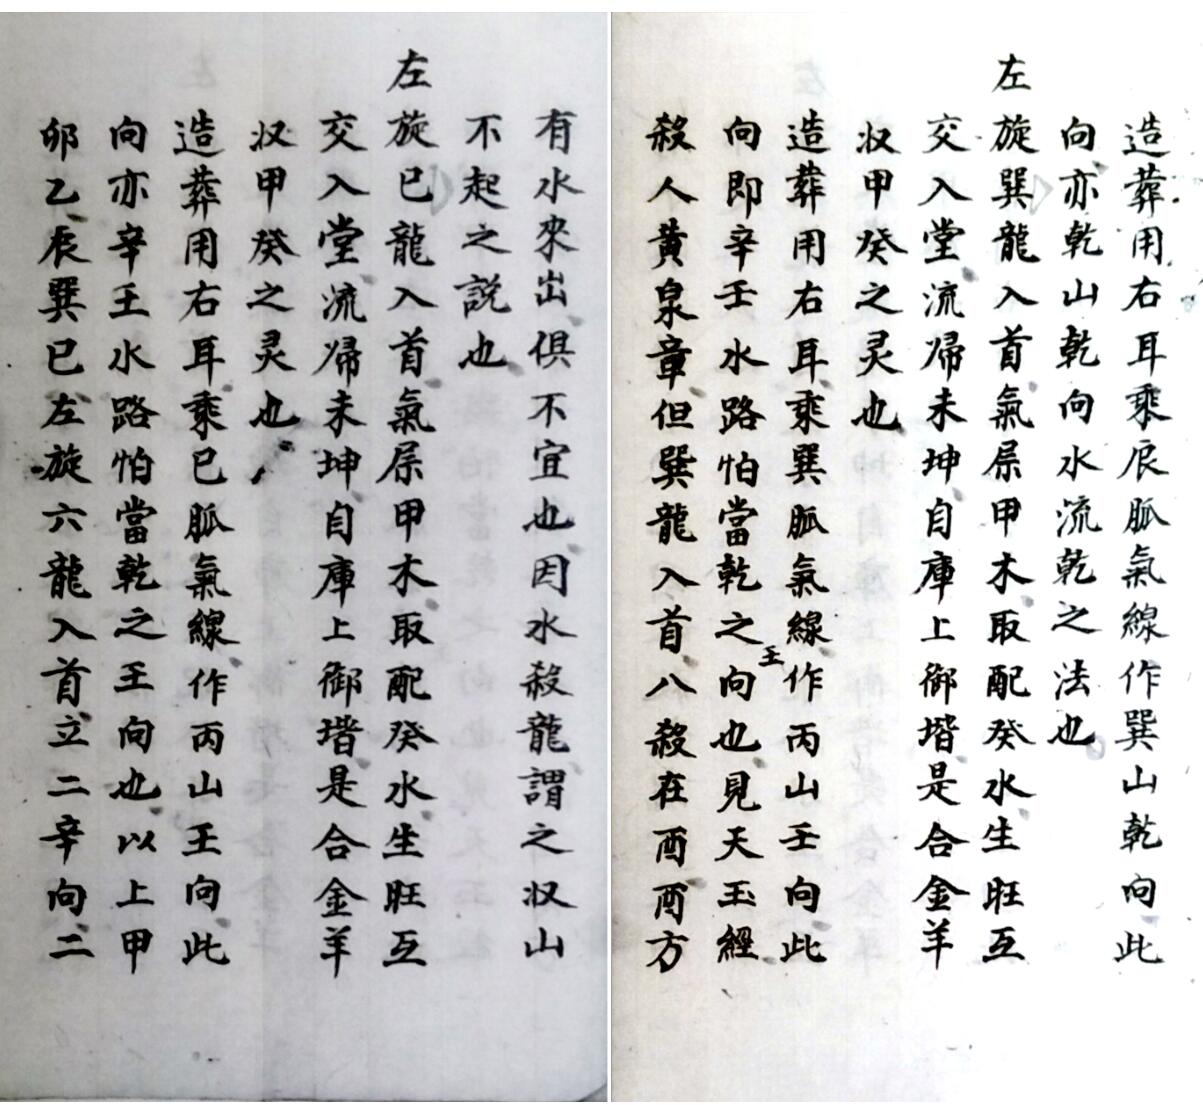 造葬用右耳乘辰脈氣線作巽山乾向此
向亦乾山乾向水流乾之法也
左旋巽龍入首氣屬甲木取配癸水生旺互
交入堂流歸未坤自庫上御堦是合金羊
収甲癸之灵也
造葬用右耳乘巽脈氣線作丙山壬向此
向即辛壬水路怕當乾之向也見天玉經
王
殺人黄泉章但巽龍入首八殺在酉酉方
有水來出俱不宜也因水殺龍謂之収山
不起之説也
左旋巳龍入首氣屬甲木取配癸水生旺互
交入堂流歸未坤自庫上御堦是合金羊
収甲癸之灵也
造葬用右耳乘巳脈氣線作丙山王向此
向亦辛王水路怕當乾之王向也以上甲
卯乙辰巽巳左旋六龍入首立二辛向二